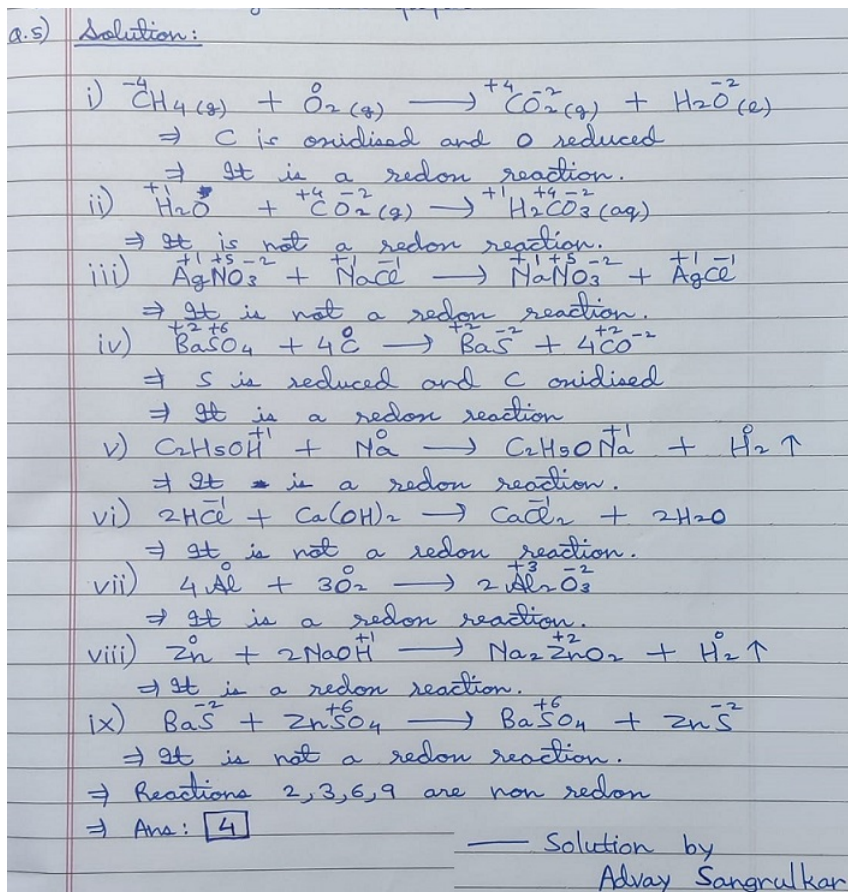 Q.5) Solution:
i) ⁻⁴CH4(g) + O⁰2(g) ⟶ ⁺⁴CO⁻²2(g) + H2O⁻²(l)
⇒ C is oxidised and O reduced
⇒ It is a redox reaction.
ii) H⁺¹2O + ⁺⁴CO⁻²2(g) ⟶ ⁺¹H2C⁺⁴O⁻²3(aq)
⇒ It is not a redox reaction.
iii) Ag⁺¹N⁺⁵O⁻²3 + Na⁺¹Cl⁻¹ ⟶ Na⁺¹N⁺⁵O⁻²3 + Ag⁺¹Cl⁻¹
⇒ It is not a redox reaction.
iv) Ba⁺²S⁺⁶O4 + 4C⁰ ⟶ Ba⁺²S⁻² + 4C⁺²O⁻²
⇒ S is reduced and C oxidised
⇒ It is a redox reaction
v) C2H5OH⁺¹ + Na⁰ ⟶ C2H5ONa⁺¹ + H⁰2 ↑
⇒ It is a redox reaction.
vi) 2HCl⁻¹ + Ca(OH)2 ⟶ CaCl⁻¹2 + 2H2O
⇒ It is not a redox reaction.
vii) 4Al⁰ + 3O⁰2 ⟶ 2Al⁺³2O⁻²3
⇒ It is a redox reaction.
viii) Zn⁰ + 2NaOH⁺¹ ⟶ Na2Zn⁺²O2 + H⁰2 ↑
⇒ It is a redox reaction.
ix) BaS⁻² + ZnS⁺⁶O4 ⟶ BaS⁺⁶O4 + ZnS⁻²
⇒ It is not a redox reaction.
⇒ Reactions 2,3,6,9 are non redox
⇒ Ans: 4
— Solution by
Advay Sangrulkar